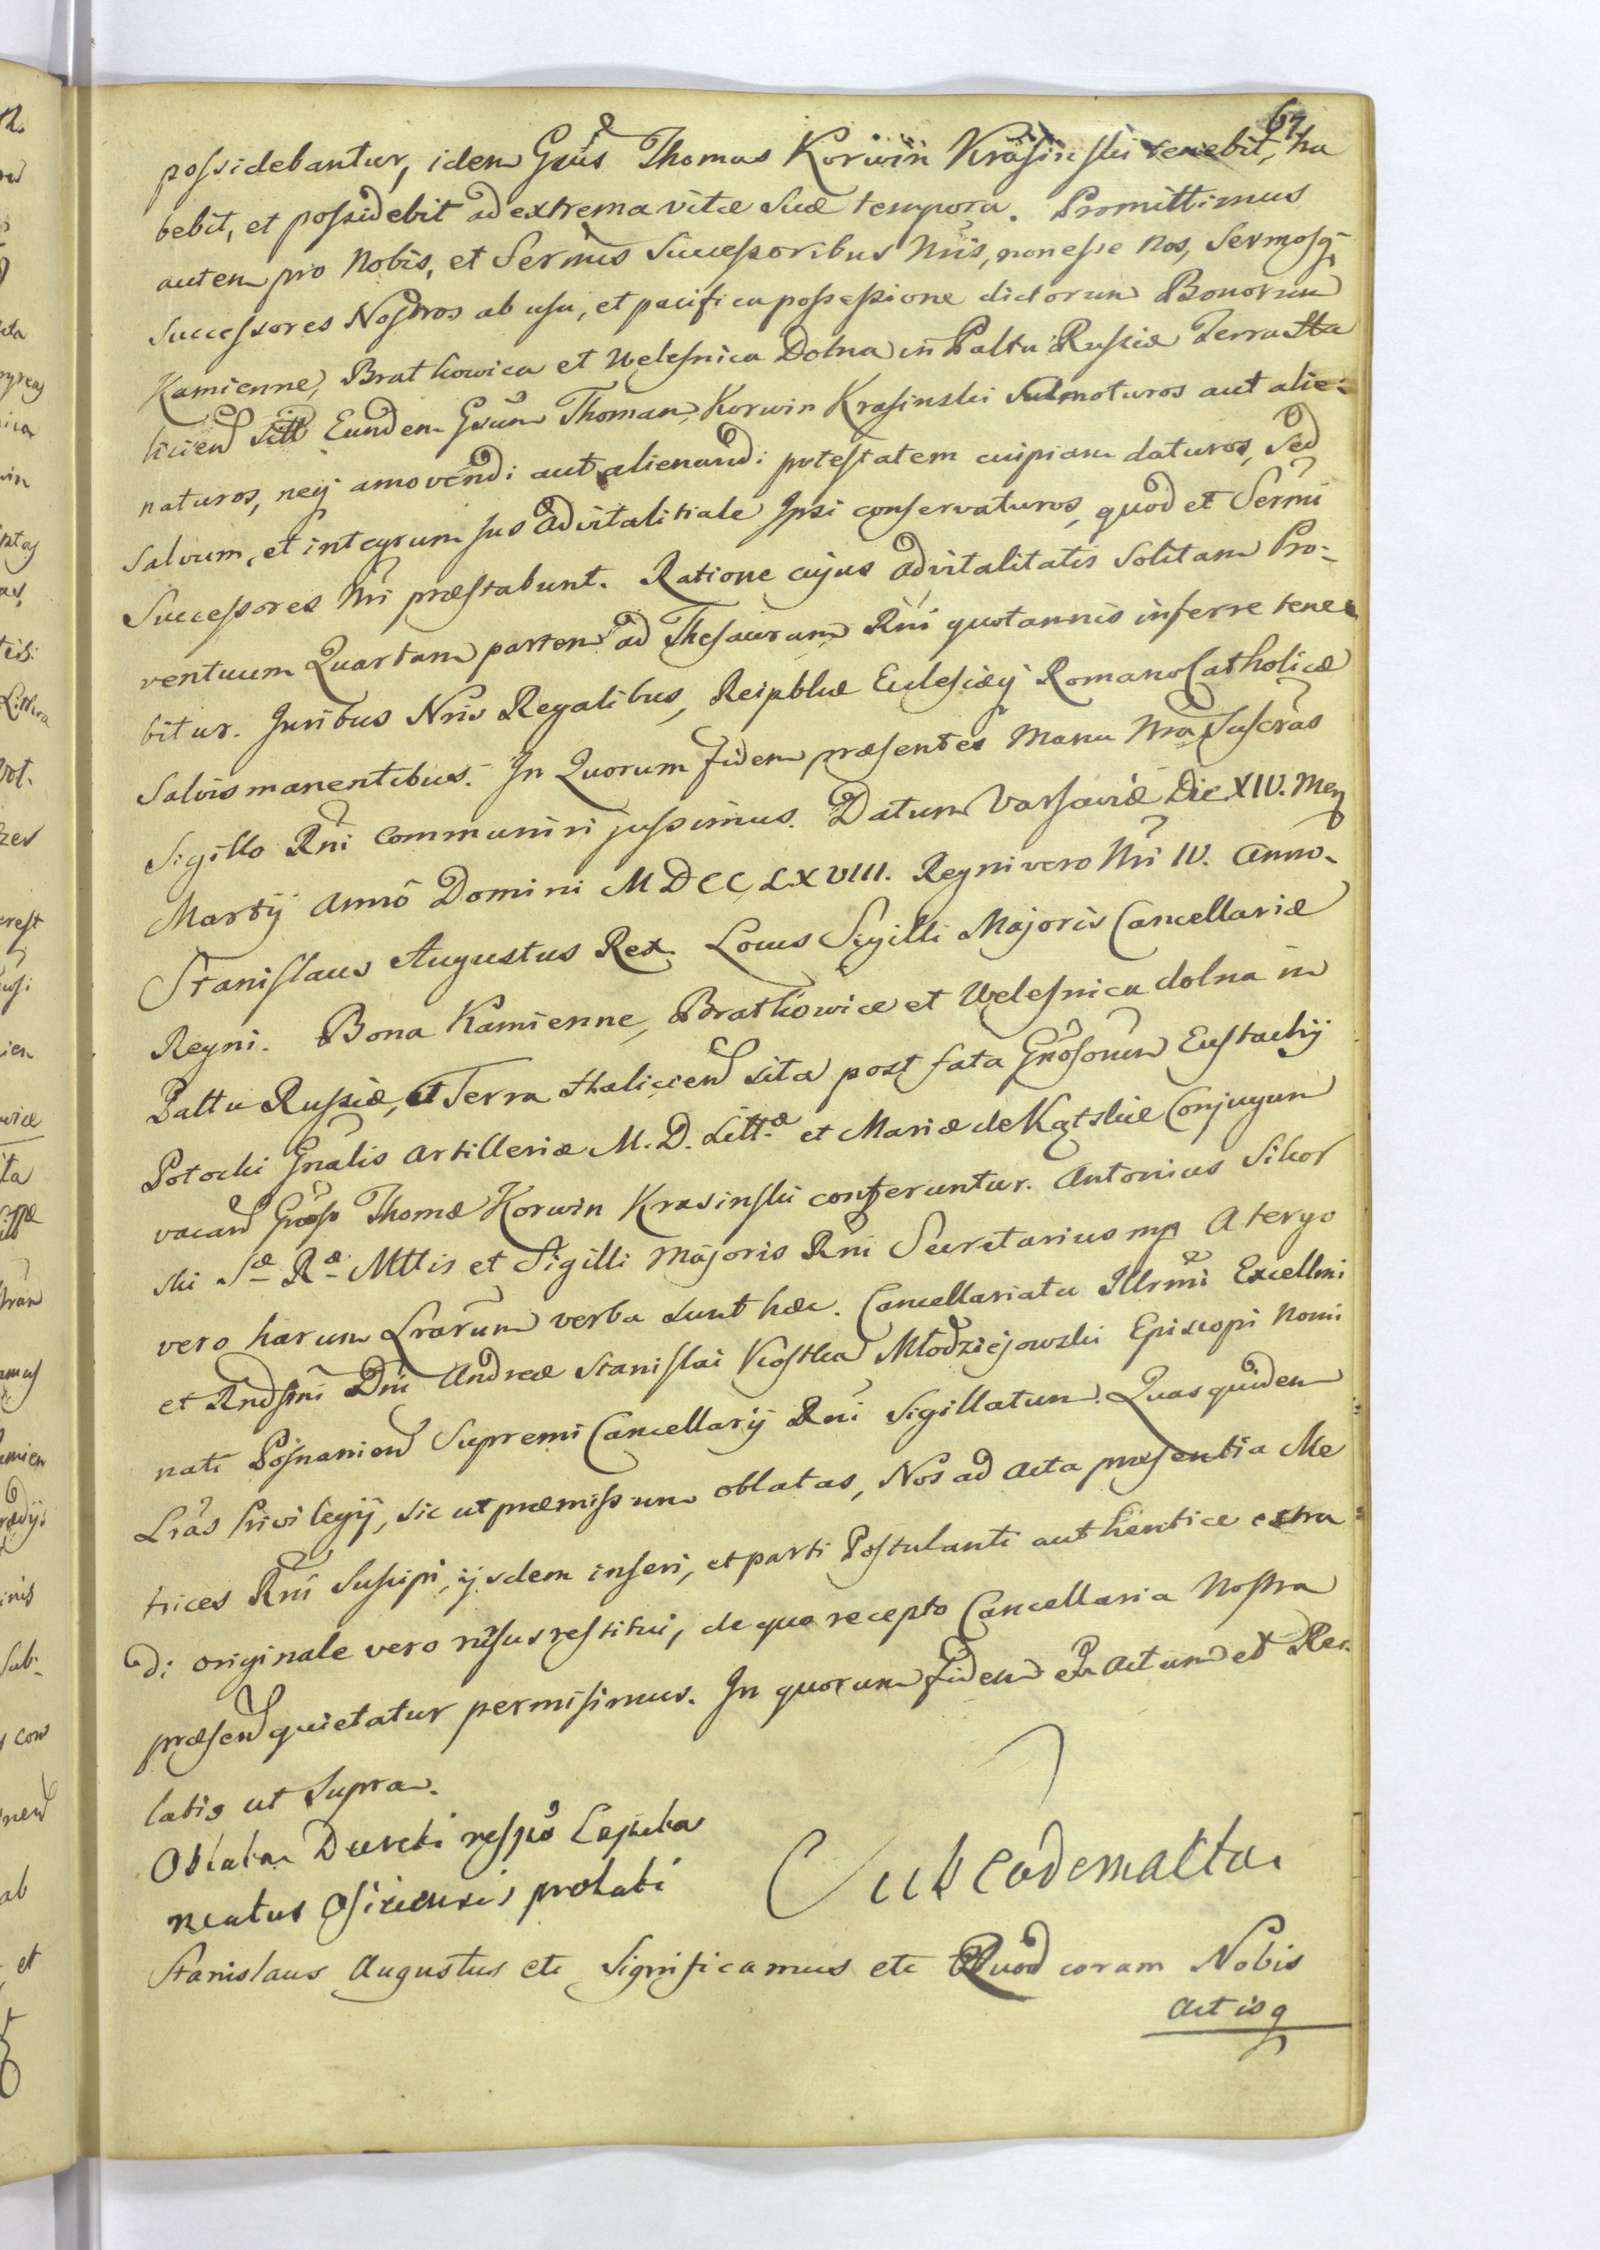 67
possidebantur, idem Gsus Thomas Korwin Krasinski tenebit, ha
bebit, et possidebit ad extrema vitæ suæ tempora. Promittimus
autem pro Nobis, et Sermis Successoribus Nris, non esse Nos, Sermosq
Successores Nostros ab usu, et pacifica possessione dictorum Bonorum
Kamienne, Bratkowica et Welesnica Dolna in Paltu Russiæ Terra Ha
liciend sitt Eundem Gsum Thomam Korwin Krasinski submoturos aut alie-
naturos, neq amovendi aut alienandi potestatem cuipiam daturos, sed
salvum, et integrum Jus Advitalitiale Ipsi conservaturos, quod et Sermi
Successores Nri præstabunt. Ratione cujus advitalitatis solitam Pro-
ventuum Quartam partem ad Thesaurum Rni quotannis inferre tene
bitur. Juribus Nris Regalibus, Reipblæ Eclesiæq Romano Catholicæ
salvis manentibus. In Quorum fidem præsentes Manu Nra Suscras
Sigillo Rni communiri jussimus. Datum Varsaviæ Die XIV. Men
Martij Anno Domini MDCCLXVIII. Regni vero Nri IV. Anno.
Stanislaus Augustus Rex. Locus Sigilli Majoris Cancellariæ
Regni. Bona Kamienne, Bratkowice et Welesnica dolna in
Paltu Russiæ, et Terra Haliciend sita post fata Gnosorum Eustachij
Potocki Gnalis Artilleriæ M. D. Littæ et Mariæ de Kątskie Conjugum
vacand Gnoso Thomæ Korwin Krasinski conferuntur. Antonius Sikor
ski Sæ Ræ Mttis et Sigilli Majoris Rni Secretarius mp A tergo
vero harum Lrarum verba sunt hæc. Cancellariatu Illrmi Excellmi
et Rndsmi Dni Andreæ Stanislai Kostka Młodziejowski Episcopi Nomi
nati Posnaniend Supremi Cancellarij Rni Sigillatum. Quas quidem
Lras Privilegij, sic ut præmissum oblatas, Nos ad Acta præsentia Me
trices Rni suscipi, ijsdem inseri, et parti Postulanti authentice extra
di originale vero rursus restitui, de quo recepto Cancellaria Nostra
præsend quietatur permisimus. In quorum fidem Actum et
latis ut Supra.
Oblata Decreti respu Capitha
neatus Osiecensis prolati
Sub eadem acta.
Stanislaus Augustus etc Significamus etc Quod coram Nobis
Actisq